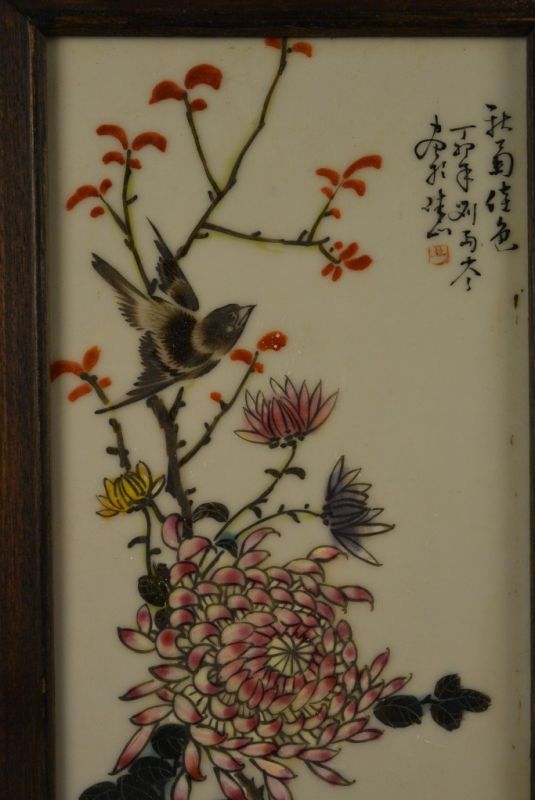 秋菊佳色
丁卯年刘雨岑
画於珠山